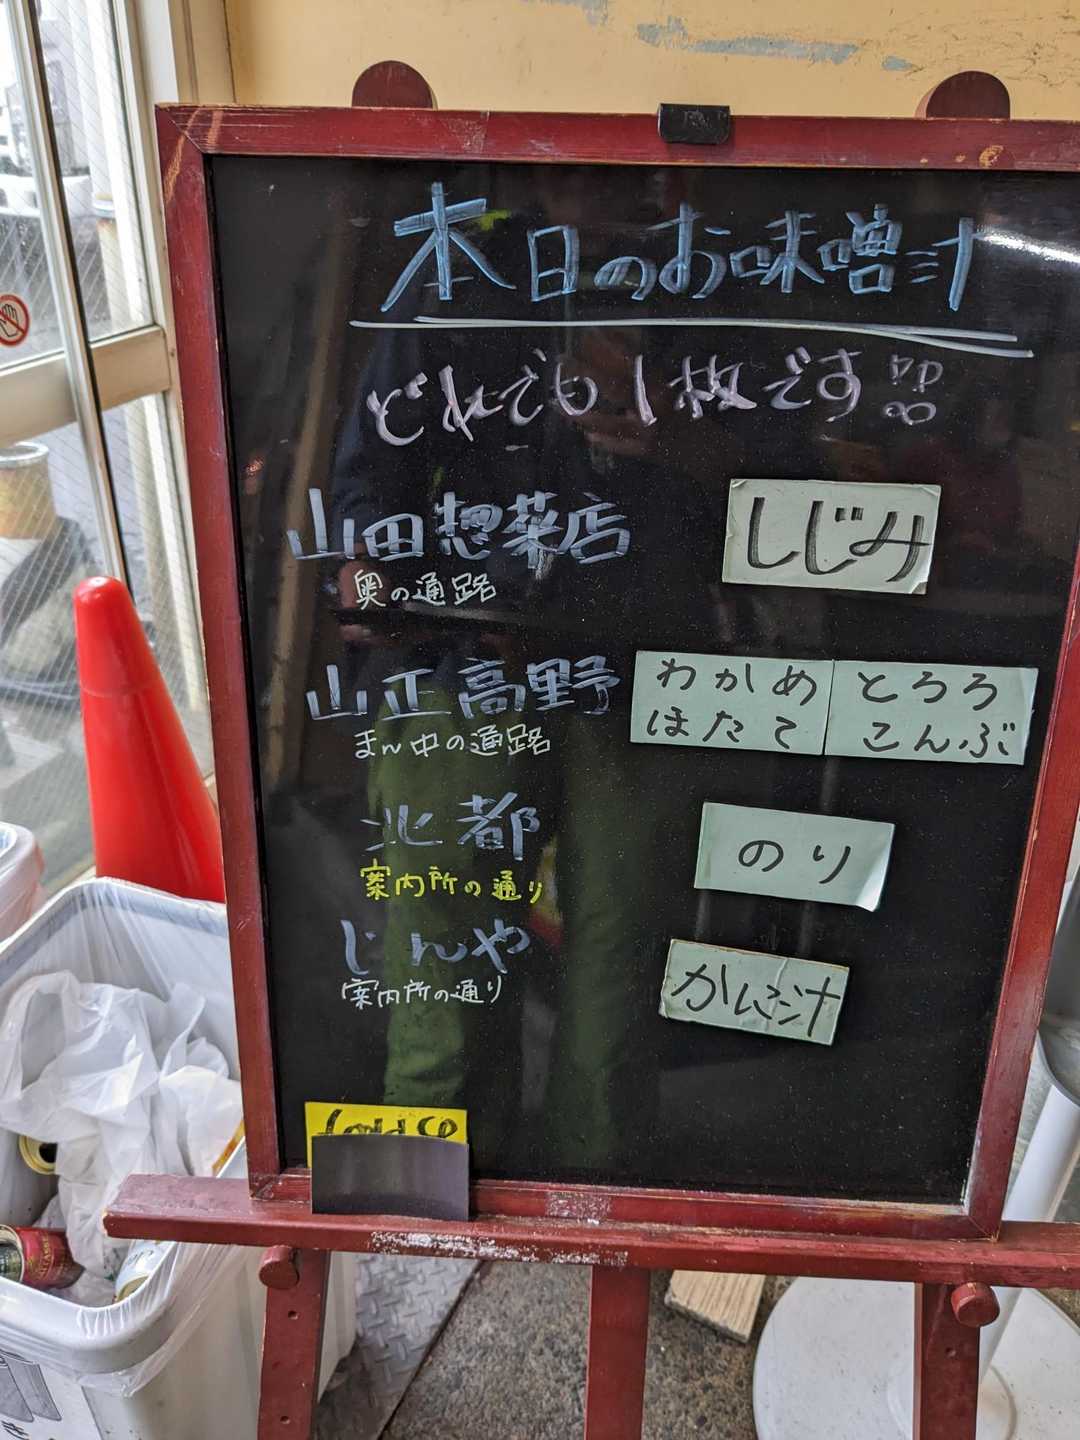 本日のお味噌汁
どれでも1枚です!!
山田惣菜店
しじみ
奥の通路
山正高野
わかめ
ほたて
とろろ
こんぶ
まん中の通路
北都
のり
案内所の通り
じんや
かに汁
案内所の通り